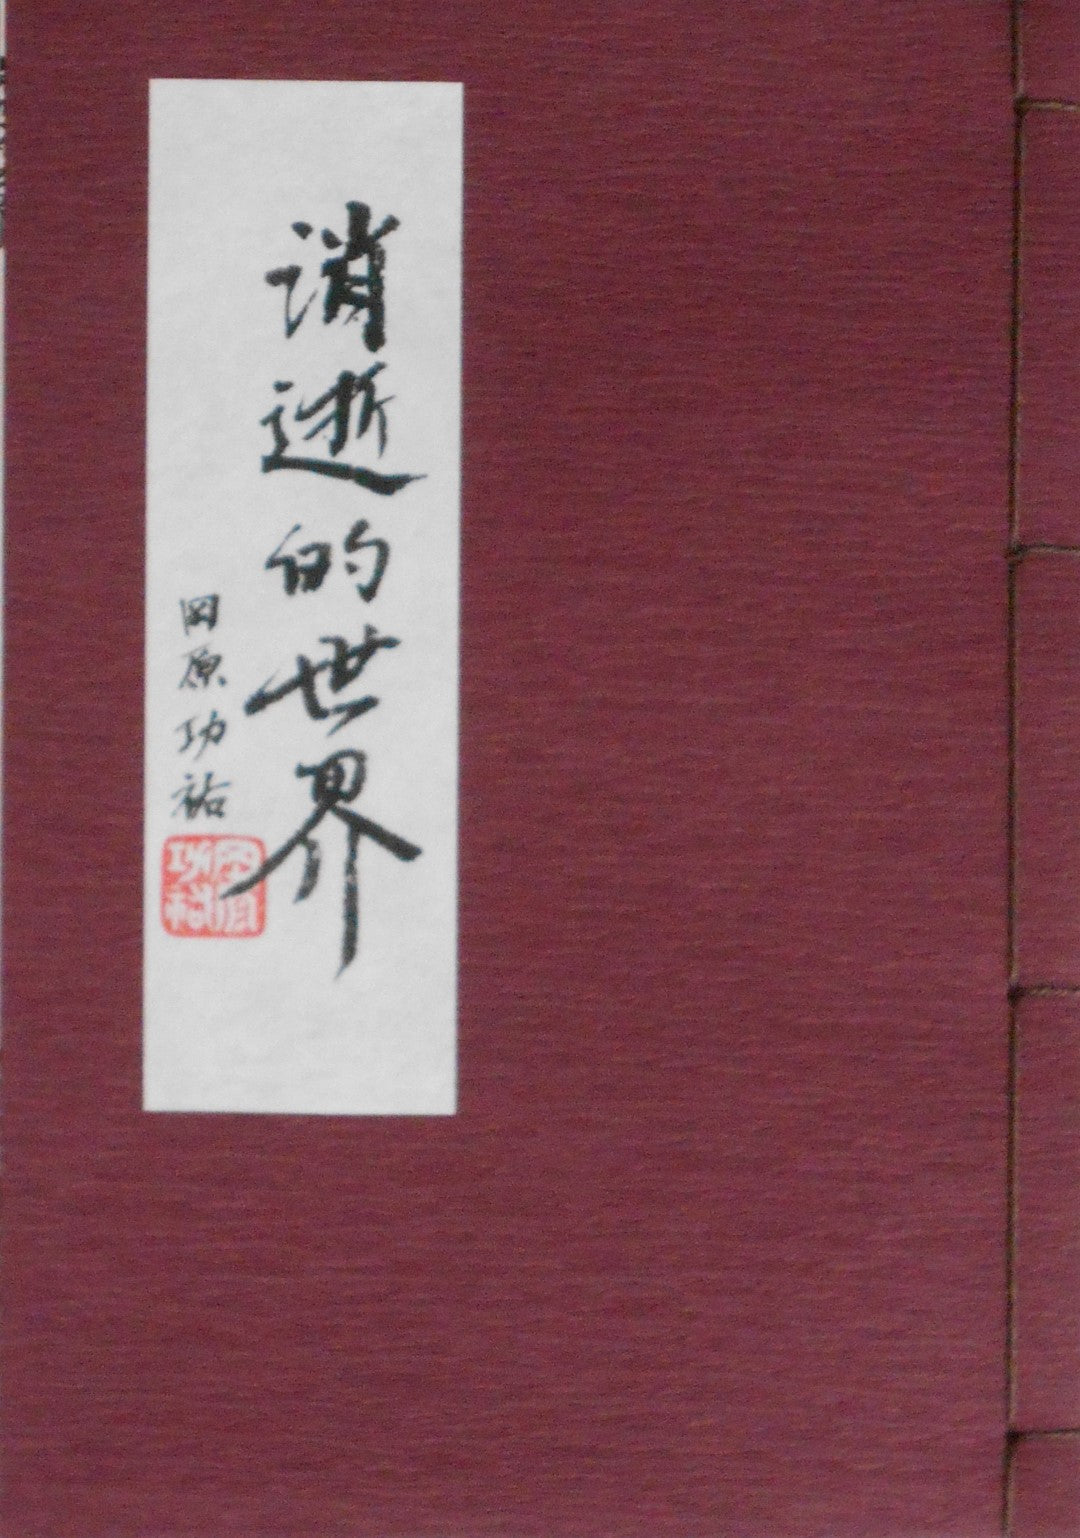 消逝的世界
岡原功祐
岡原功祐